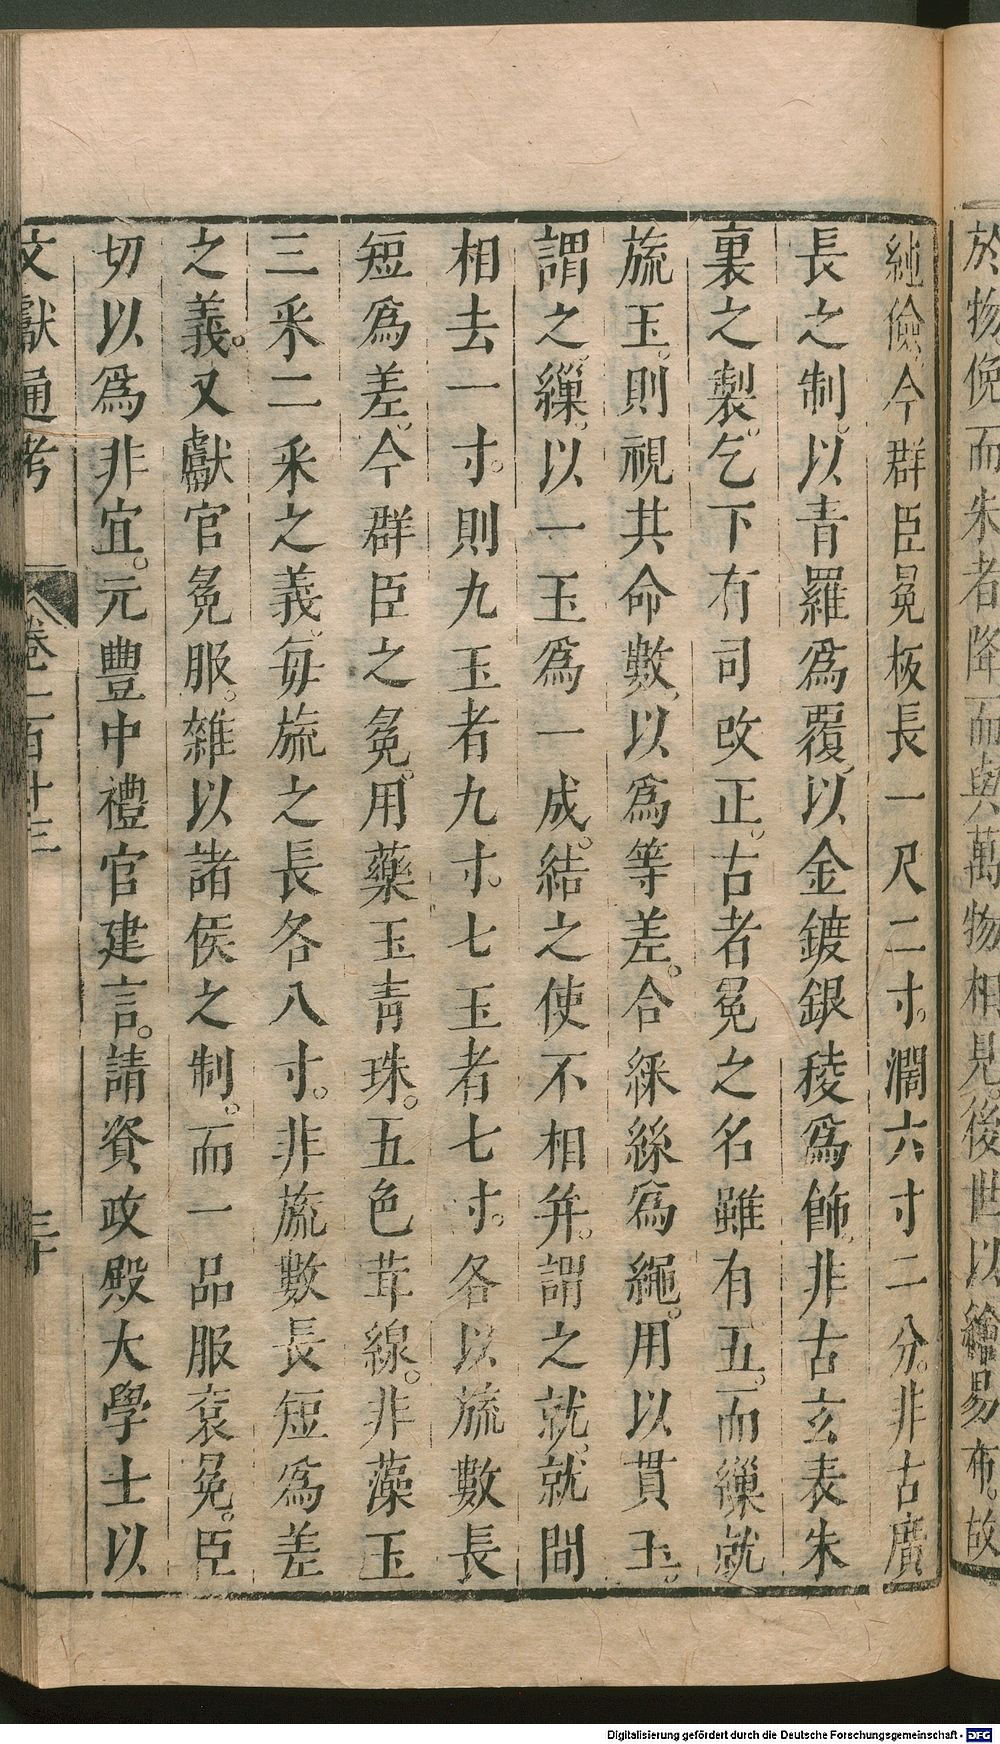 於物俛而朱者降而與萬物相見後世以繪易布故
純儉今群臣冕板長一尺二寸濶六寸二分非古廣
長之制以青羅爲覆以金鍍銀稜爲飾非古玄表朱
裏之製乞下有司改正古者冕之名雖有五而繅就
旒玉則視其命數以爲等差合綵絲爲繩用以貫玉
謂之繅以一玉爲一成結之使不相并謂之就就間
相去一寸則九玉者九寸七玉者七寸各以旒數長
短爲差今群臣之冕用藥玉青珠五色茸線非藻玉
三采二采之義每旒之長各八寸非旒數長短爲差
之義又獻官冕服雜以諸侯之制而一品服衮冕臣
切以爲非宜元豐中禮官建言請資政殿大學士以
文獻通考 卷一百廿三 三十
Digitalisierung gefördert durch die Deutsche Forschungsgemeinschaft - DFG